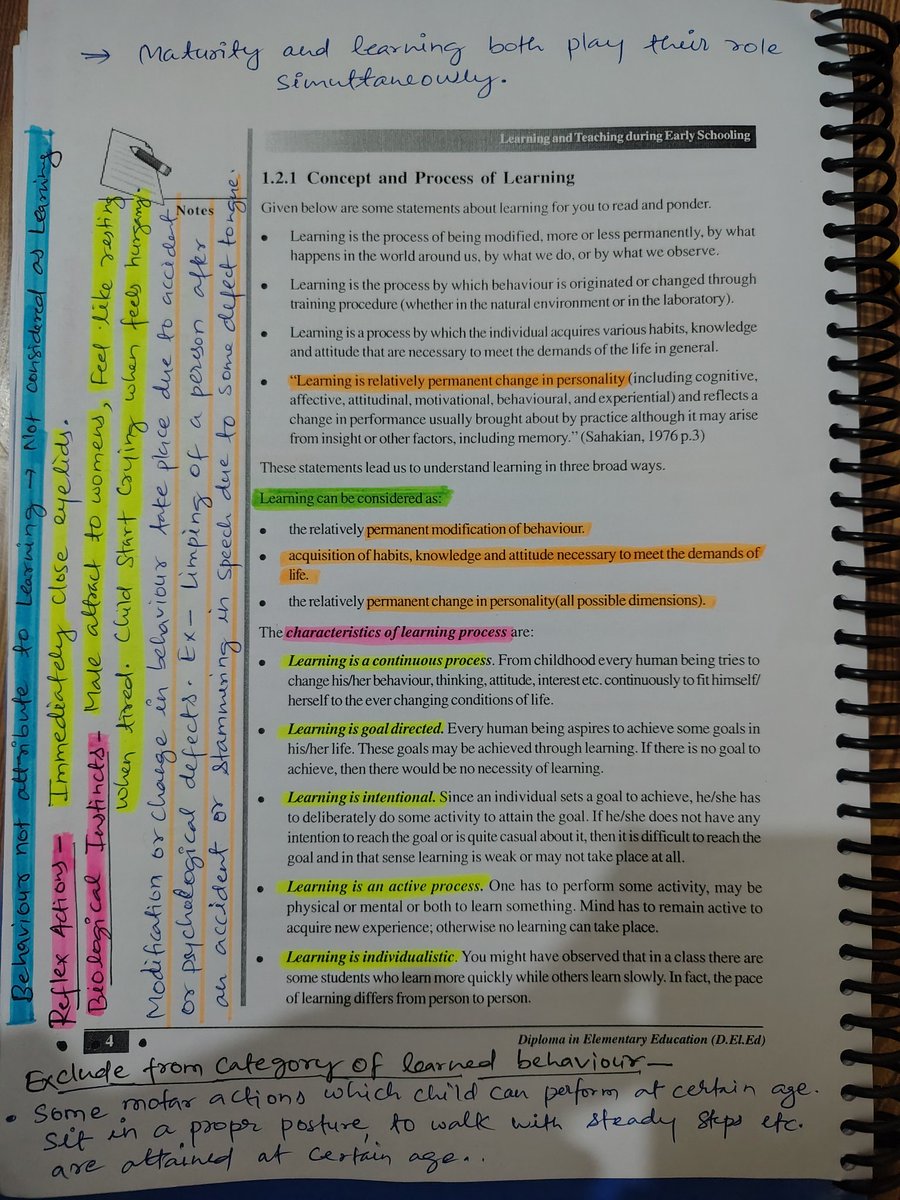 → Maturity and learning both play their role
simultaneously.
Learning and Teaching during Early Schooling
Notes
1.2.1 Concept and Process of Learning
Given below are some statements about learning for you to read and ponder.
• Learning is the process of being modified, more or less permanently, by what
happens in the world around us, by what we do, or by what we observe.
• Learning is the process by which behaviour is originated or changed through
training procedure (whether in the natural environment or in the laboratory).
• Learning is a process by which the individual acquires various habits, knowledge
and attitude that are necessary to meet the demands of the life in general.
• “Learning is relatively permanent change in personality (including cognitive,
affective, attitudinal, motivational, behavioural, and experiential) and reflects a
change in performance usually brought about by practice although it may arise
from insight or other factors, including memory.” (Sahakian, 1976 p.3)
These statements lead us to understand learning in three broad ways.
Learning can be considered as:
• the relatively permanent modification of behaviour.
• acquisition of habits, knowledge and attitude necessary to meet the demands of
life.
• the relatively permanent change in personality(all possible dimensions).
The characteristics of learning process are:
• Learning is a continuous process. From childhood every human being tries to
change his/her behaviour, thinking, attitude, interest etc. continuously to fit himself/
herself to the ever changing conditions of life.
• Learning is goal directed. Every human being aspires to achieve some goals in
his/her life. These goals may be achieved through learning. If there is no goal to
achieve, then there would be no necessity of learning.
• Learning is intentional. Since an individual sets a goal to achieve, he/she has
to deliberately do some activity to attain the goal. If he/she does not have any
intention to reach the goal or is quite casual about it, then it is difficult to reach the
goal and in that sense learning is weak or may not take place at all.
• Learning is an active process. One has to perform some activity, may be
physical or mental or both to learn something. Mind has to remain active to
acquire new experience; otherwise no learning can take place.
• Learning is individualistic. You might have observed that in a class there are
some students who learn more quickly while others learn slowly. In fact, the pace
of learning differs from person to person.
Behaviour not attribute to Learning → Not considered as Learning
• Reflex Actions - Immediately close eyelids.
Biological Instincts - Male attract to womens, Feel like resting
when tired. Child Start Crying when feels hungary.
Modification or change in behaviour take place due to accident
or psychological defects. Ex - limping of a person after
an accident or Stammring in Speech due to Some defect tongue.
4
Diploma in Elementary Education (D.El.Ed)
Exclude from Category of learned behaviour —
• Some motar actions which child can perform at certain age.
Sit in a proper posture, to walk with steady steps etc.
are attained at certain age..